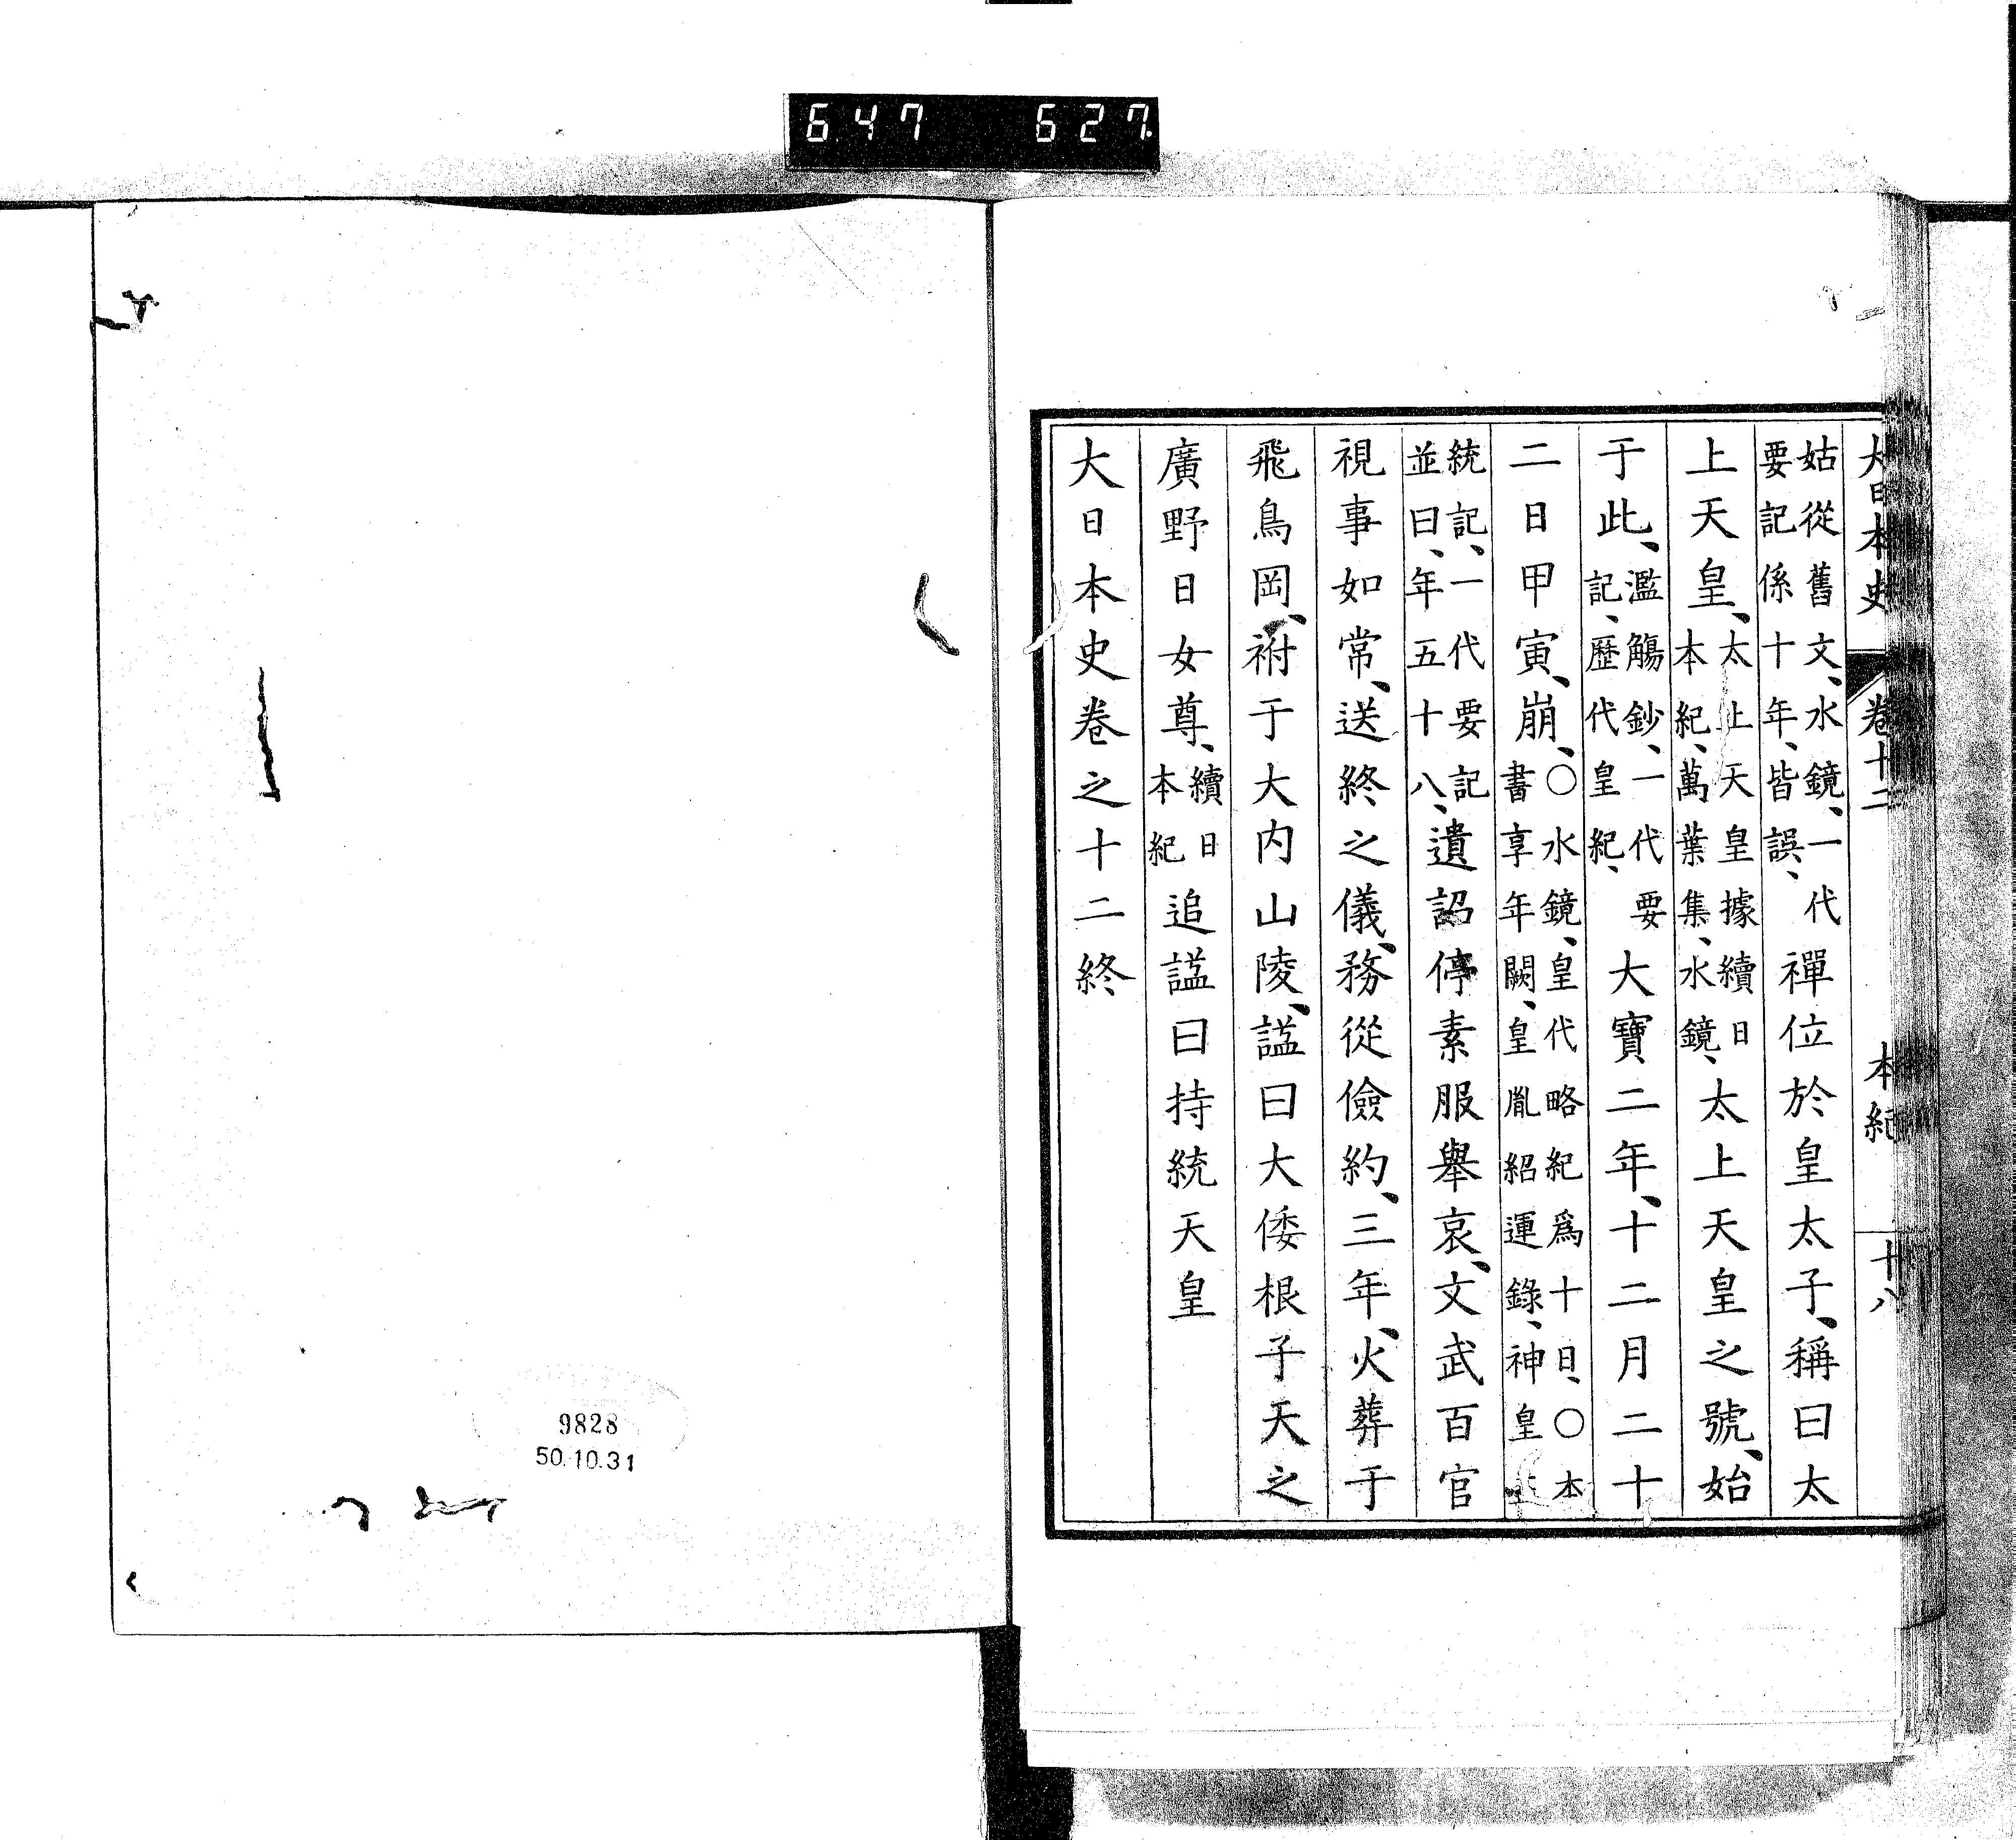 647 627.
大日本史 卷十二 本紀 十八
姑從舊文、水鏡、一代要記係十年、皆誤、禪位於皇太子、稱曰太
上天皇、太上天皇據續日本紀、萬葉集、水鏡、太上天皇之號、始
于此、濫觴鈔、一代要記、歷代皇紀、大寶二年、十二月二十
二日甲寅、崩、○水鏡、皇代略紀爲十日、○本書享年闕、皇胤紹運錄、神皇
統記、一代要記並曰、年五十八、遺詔停素服舉哀、文武百官
視事如常、送終之儀、務從儉約、三年、火葬于
飛鳥岡、祔于大内山陵、諡曰大倭根子天之
廣野日女尊、續日本紀追諡曰持統天皇
大日本史卷之十二終
9828
50.10.31